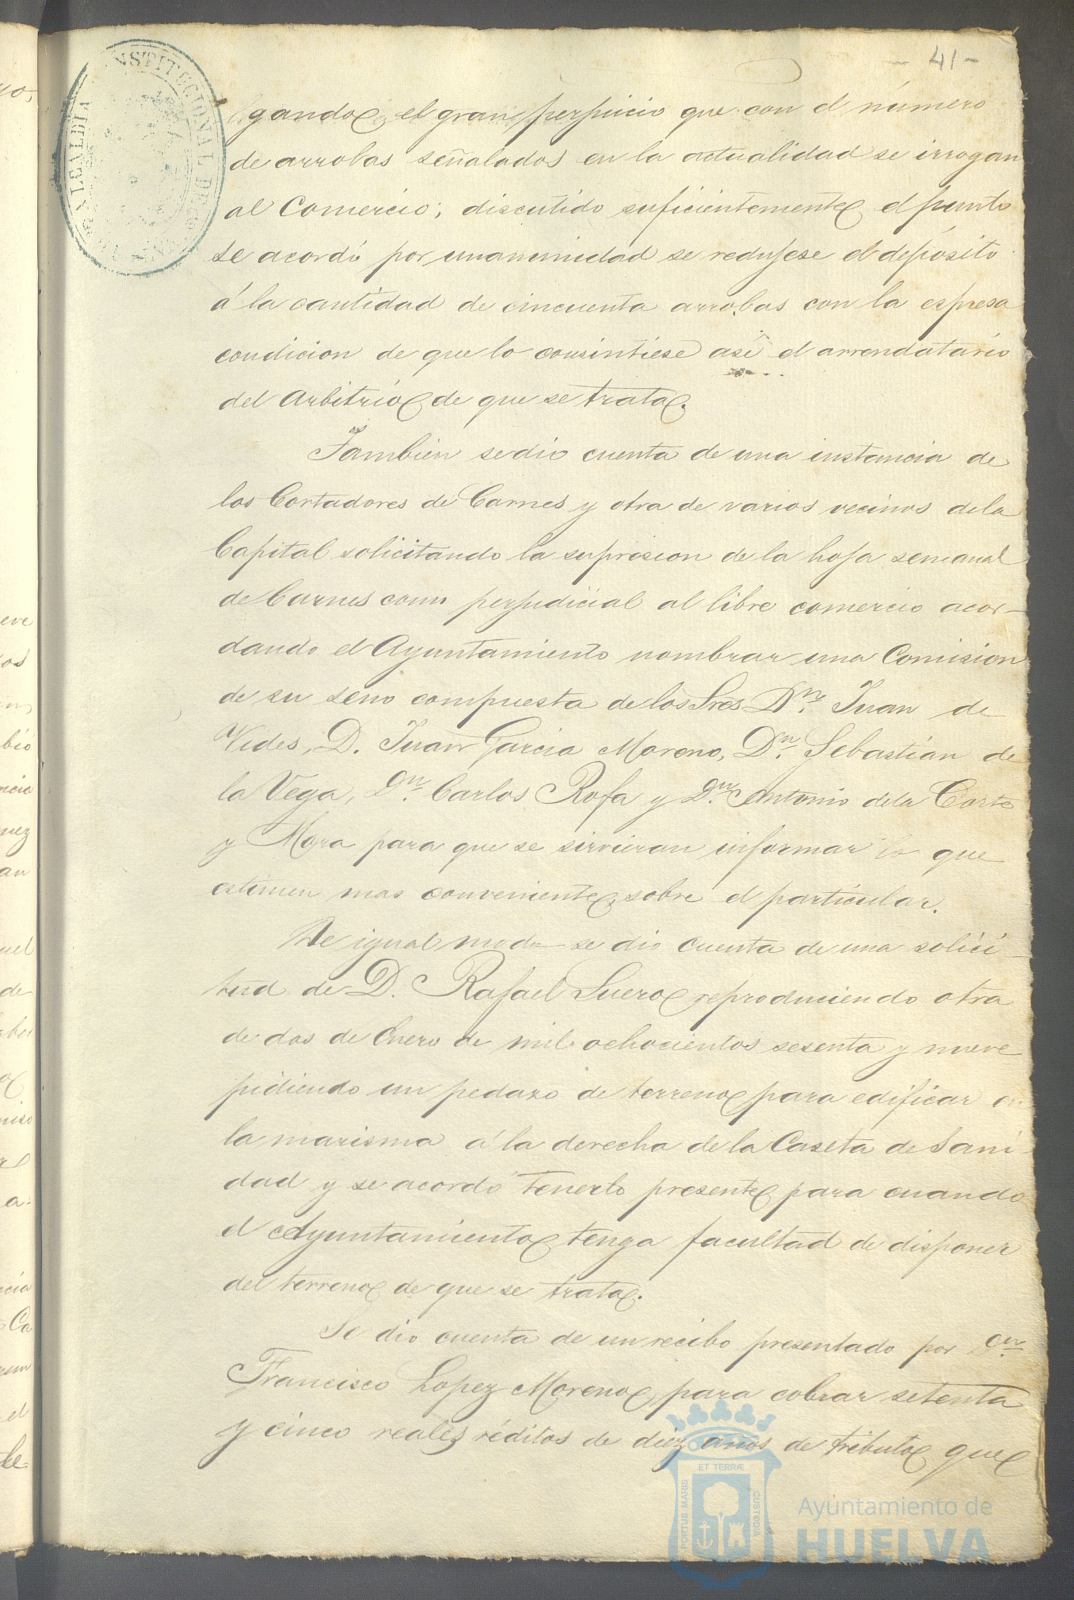 - 41 -
ALCALDIA CONSTITUCIONAL DE
gando el gran perjuicio que con el número
de arrobas señalados en la actualidad se irrogan
al Comercio; discutido suficientemente el punto
se acordó por unanimidad se redujese el depósito
á la cantidad de cincuenta arrobas con la espresa
condicion de que lo consintiese asi el arrendatario
del arbitrio de que se trata.
Tambien se dio cuenta de una instancia de
los Cortadores de Carnes y otra de varios vecinos de la
Capital solicitando la supresion de la hoja semanal
de Carnes como perjudicial al libre comercio acor-
dando el Ayuntamiento nombrar una Comision
de su seno compuesta de los Sres Dn. Juan de
Vides, D. Juan Garcia Moreno, Dn. Sebastian de
la Vega, Dn. Carlos Rofa y Dn. Antonio de la Corte
y Mora para que se sirvieran informar lo que
estimen mas conveniente sobre el particular.
De igual modo se dio cuenta de una solici-
tud de D. Rafael Suero reproduciendo otra
de dos de Enero de mil ochocientos sesenta y nueve
pidiendo un pedazo de terreno para edificar en
la marisma á la derecha de la Caseta de Sani-
dad y se acordó tenerlo presente para cuando
el Ayuntamiento tenga facultad de disponer
del terreno de que se trata.
Se dio cuenta de un recibo presentado por Dn.
Francisco Lopez Moreno para cobrar setenta
y cinco reales réditos de diez años de tributo que
PORTUS MARIS ET TERRÆ CUSTODIA
Ayuntamiento de
HUELVA